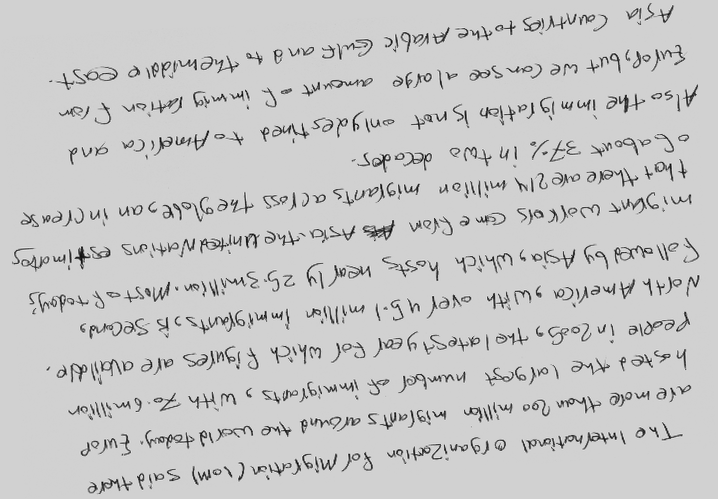 The International organization for Migration (IOM) said there
are more than 200 million migrants around the world today. Europ
hosted the largest number of immigrants, with 70.6 million
People in 2005, the latest year for which figures are available.
North America, with over 45.1 million immigrants, is second,
followed by Asia, which hosts nearly 25.3 million. Most of today's
migrant workers come from Asia. the United Nations estimates
that there are 214 million migrants across the globe, an increase
of about 37% in two decades.
Also the immigration is not only destined to America and
Europ, but we can see a large amount of immigration from
Asia Countries to the Arabic Gulf and to the middle east.